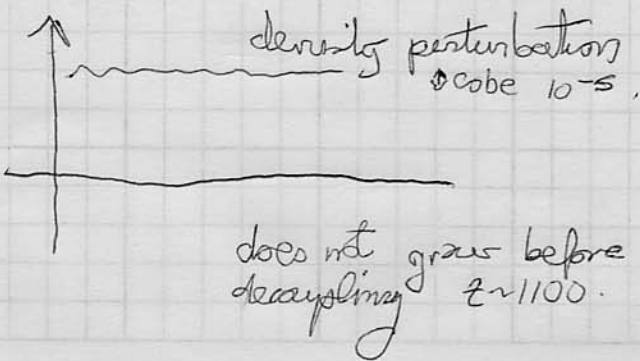 density perturbation
cobe 10⁻⁵.
does not grow before
decoupling z~1100.